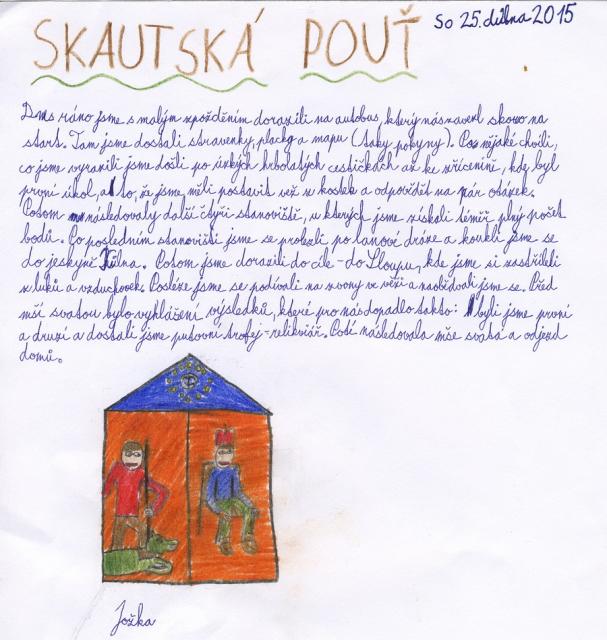 SKAUTSKÁ POUŤ So 25. dubna 2015
Dnes ráno jsme s malým zpožděním dorazili na autobus, který nás zavezl skoro na
start. Tam jsme dostali stravenky, placky a mapu (taky pokyny). Po nějaké chvíli,
co jsme vyrazili jsme došli po úzkých hrbolatých cestičkách až ke zřícenině, kde byl
první úkol, a to, že jsme měli postavit věž z kostek a odpovědět na pár otázek.
Potom následovaly další čtyři stanoviště, u kterých jsme získali téměř plný počet
bodů. Po posledním stanovišti jsme se prolezli po lanové dráze a koukli jsme se
do jeskyně Kůlna. Potom jsme dorazili do cíle - do Sloupu, kde jsme si zastříleli
z luků a vzduchovek. Posléze jsme se podívali na zvony ve věži a naobědvali jsme se. Před
mší svatou bylo vyhlášení výsledků, které pro nás dopadlo takto: byli jsme první
a druzí a dostali jsme putovní trofej - relikviář. Poté následovala mše svatá a odjezd
domů.
Jožka